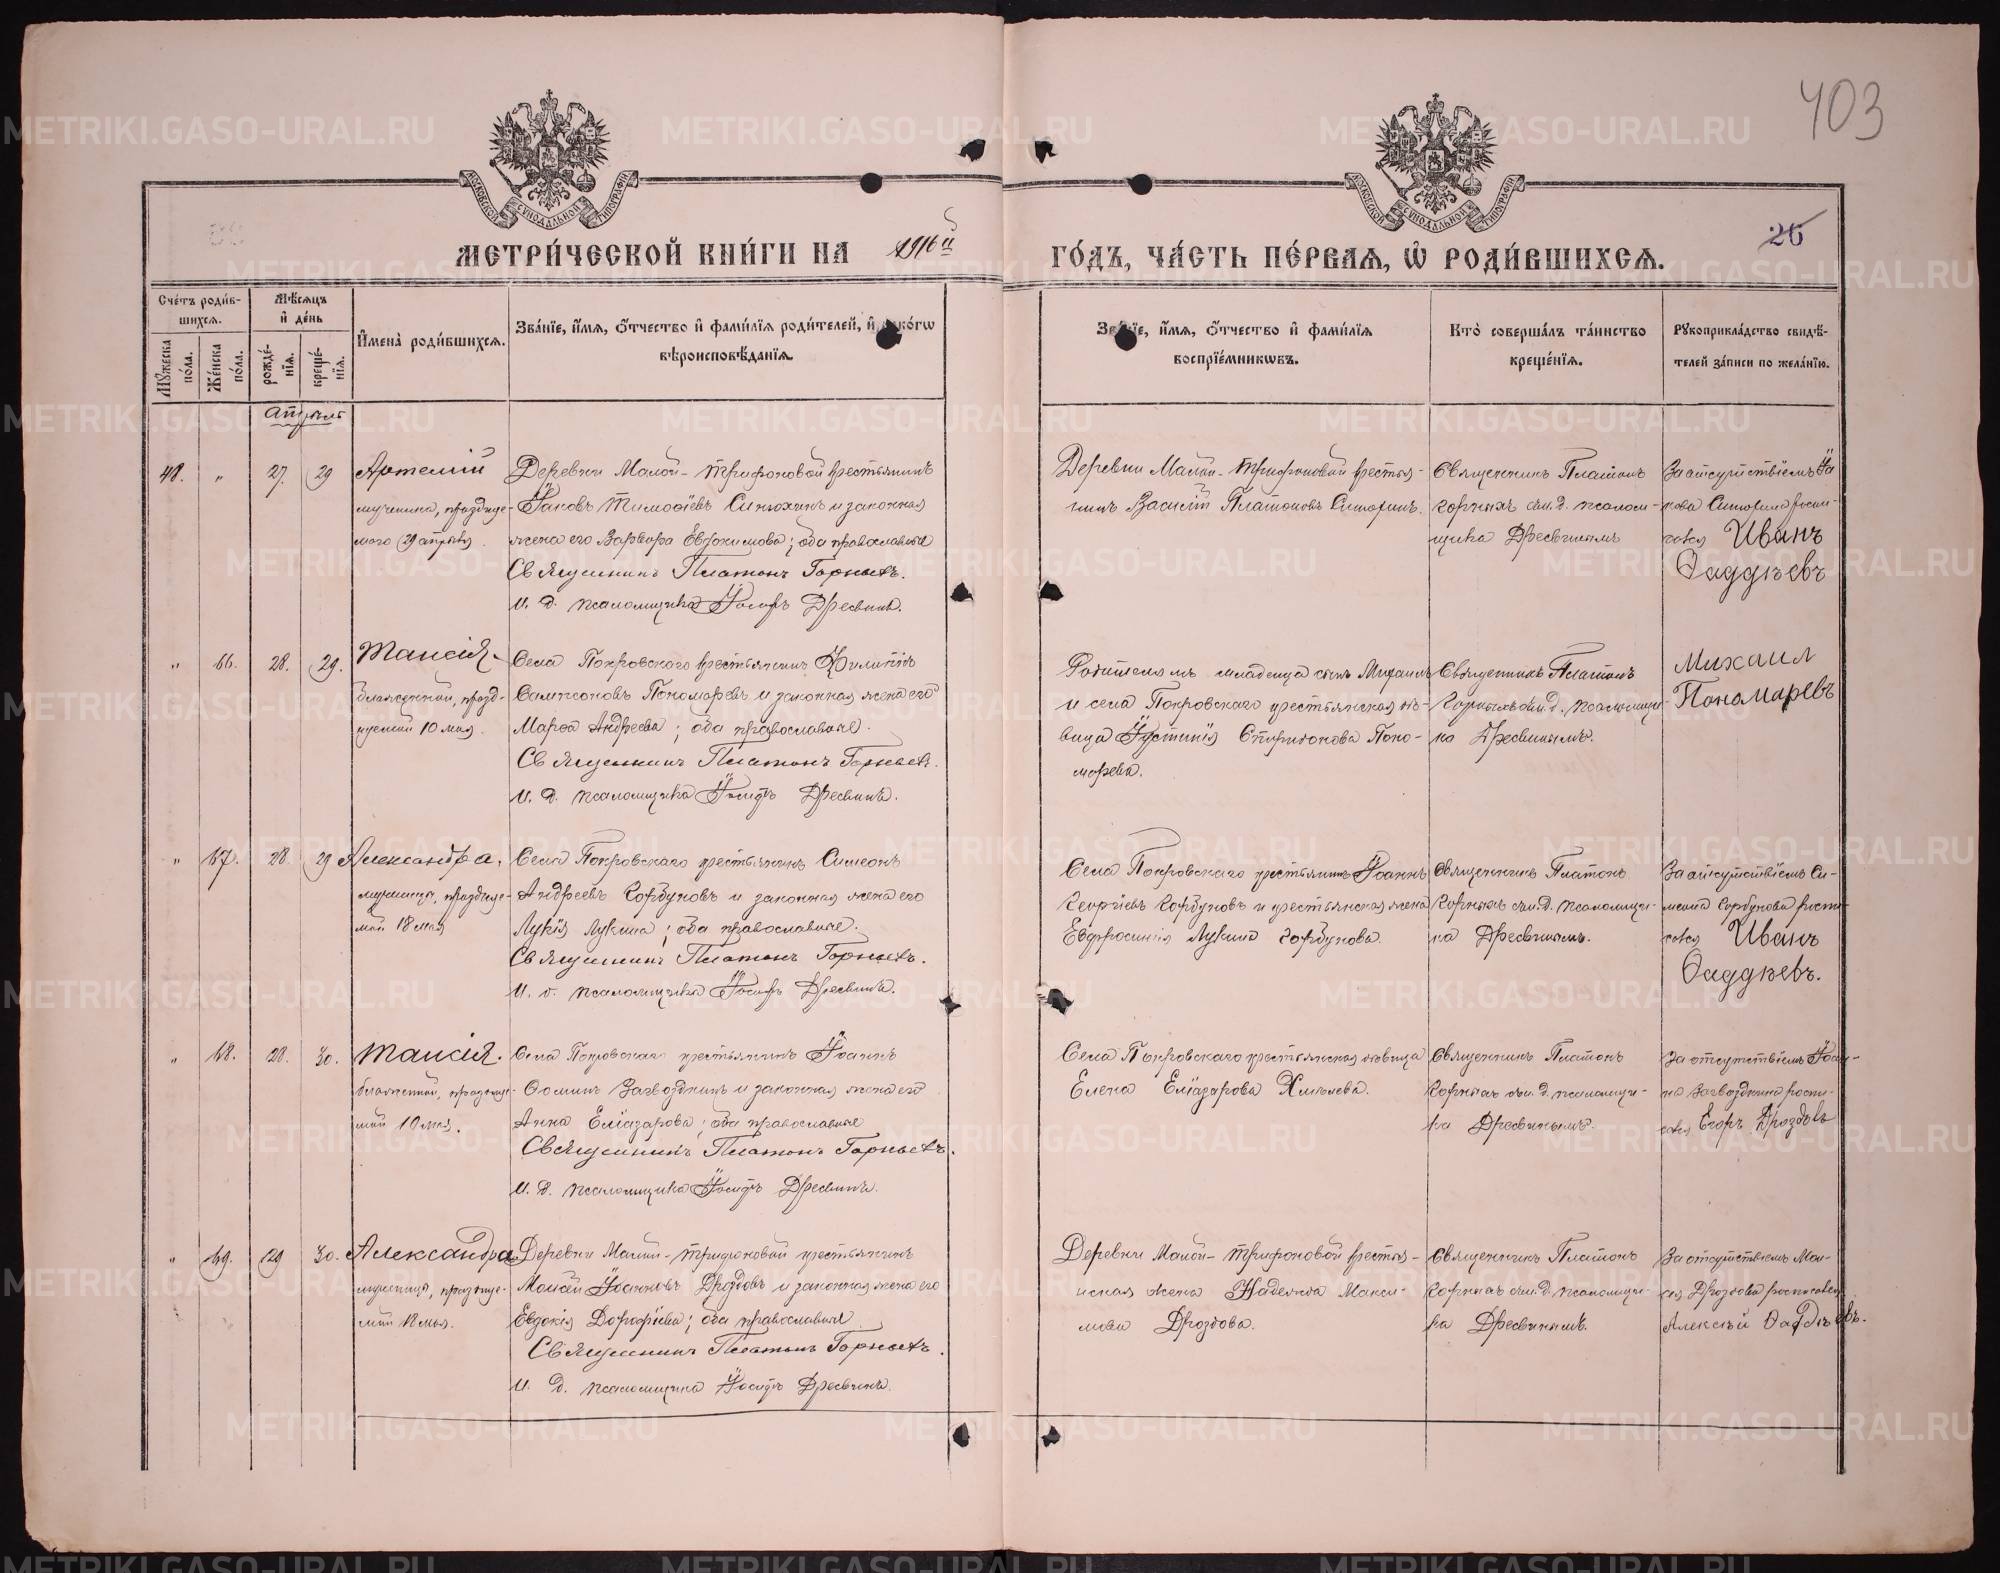 403
26
МЕТРИЧЕСКОЙ КНИГИ НА 1916й ГОДЪ, ЧАСТЬ ПЕРВАЯ, Ѡ РОДИВШИХСЯ.
МОСКОВСКОЙ СΥНОДАЛЬНОЙ ТИПОГРАФІИ
МОСКОВСКОЙ СΥНОДАЛЬНОЙ ТИПОГРАФІИ
Счетъ родившихся.
Мужеска пола.
Женска пола.
Мѣсяцъ и день
рожденія.
крещенія.
Имена родившихся.
Званіе, имя, отчество и фамилія родителей, и какого
вѣроисповѣданія.
Званіе, имя, отчество и фамилія
воспріемниковъ.
Кто совершалъ таинство
крещенія.
Рукоприкладство свидѣ-
телей записи по желанію.
Апрѣль
48. " 27. 29
Артемій
мученика, праздnуе-
маго 29 апрѣля.
Деревни Малой-Трифоновой крестьянинъ
Іаковъ Тимофіевъ Синюхинъ и законная
жена его Варвара Евдокимова; оба православные
Священникъ Платонъ Горныхъ.
И. д. псаломщика Іосифъ Дресвинъ.
Деревни Малой-Трифоновой крестья-
нинъ Василій Платоновъ
Священникъ Платонъ
Горныхъ съ и. д. псалом-
щика Дресвинымъ
За отсутствіемъ Іа
кова роспи-
сался Иванъ
Ѳаддѣевъ
" 66. 28. 29.
Таисія.
блаженной, празд-
нуемой 10 мая.
Села Покровскаго крестьянинъ Филиппъ
Сампсоновъ Пономаревъ и законная жена его
Марѳа Андреева; оба православные.
Священникъ Платонъ Горныхъ.
И. д. псаломщика Іосифъ Дресвинъ.
Родителемъ младенца сынъ Михаилъ
и села Покровскаго крестьянская дѣ-
вица Іустинія Спиридонова Поно-
марева.
Священникъ Платонъ
Горныхъ съ и. д. псаломщи-
ка Дресвинымъ.
Михаил
Пономаревъ
" 67. 28. 29
Александра.
мученицы, празднуе-
мой 18 мая
Села Покровскаго крестьянинъ Симеонъ
Андреевъ Горбуновъ и законная жена его
Лукія Лукина; оба православные.
Священникъ Платонъ Горныхъ.
И. д. псаломщика Іосифъ Дресвинъ.
Села Покровскаго крестьянинъ Іоаннъ
Георгіевъ Горбуновъ и крестьянская жена
Евфросинія Лукина Горбунова.
Священникъ Платонъ
Горныхъ съ и. д. псаломщи-
ка Дресвинымъ.
За отсутствіемъ Си-
меона Горбунова роспи-
сался Иванъ
Ѳаддѣевъ.
" 68. 28. 30.
Таисія.
блаженной, празднуе-
мой 10 мая.
Села Покровскаго крестьянинъ Іоаннъ
Ѳоминъ Загвоздкинъ и законная жена его
Анна Еліазарова; оба православные
Священникъ Платонъ Горныхъ.
И. д. псаломщика Іосифъ Дресвинъ.
Села Покровскаго крестьянская дѣвица
Елена Еліазарова Хмѣлева.
Священникъ Платонъ
Горныхъ съ и. д. псаломщи-
ка Дресвинымъ.
За отсутствіемъ Іоан-
на Загвоздкина роспи-
сался Егоръ Дроздовъ
" 69. 29 30.
Александра
мученицы, празднуе-
мой 18 мая.
Деревни Малой-Трифоновой крестьянинъ
Моисей Іоанновъ Дроздовъ и законная жена его
Евдокія Дорофіева; оба православные.
Священникъ Платонъ Горныхъ.
И. д. псаломщика Іосифъ Дресвинъ.
Деревни Малой-Трифоновой крестья-
нская жена Надежда Макси-
мова Дроздова.
Священникъ Платонъ
Горныхъ съ и. д. псаломщи-
ка Дресвинымъ.
За отсутствіемъ Мои-
сея Дроздова росписался
Алексѣй Ѳаддѣевъ.
METRIKI.GASO-URAL.RU